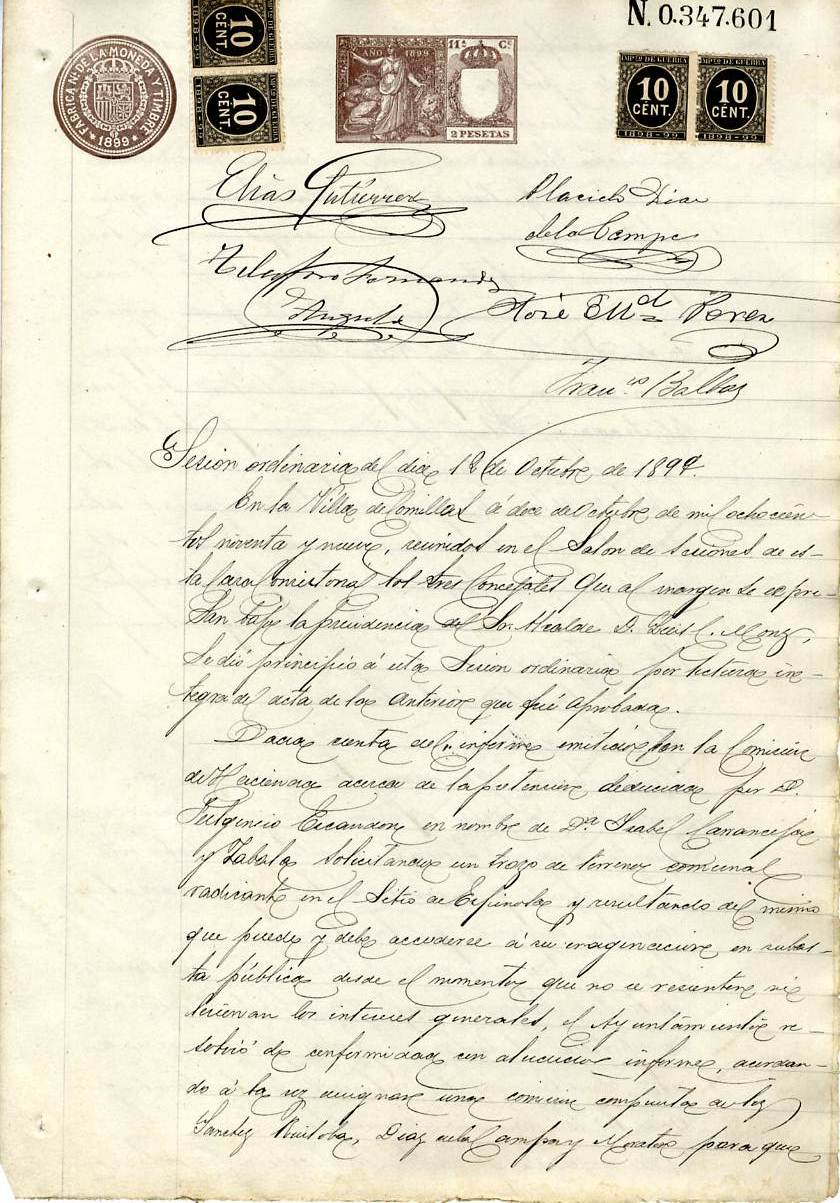 N. 0.347.601
FABRICA N. DE LA MONEDA Y TIMBRE
1899
10 CENT
1898-99
10 CENT
1898-99
AÑO 1899
11ª Cˢ
2 PESETAS
IMPTO DE GUERRA
10 CENT.
1898-99
IMPTO DE GUERRA
10 CENT.
1898-99
Elías Gutierrez
Placido Diaz
de la Campa
Telesforo Fernandez
Angulo
José Mª Perez
Franco Balbas
Sesion ordinaria del dia 12 de Octubre de 1899.
En la Villa de Comillas á doce de Octubre de mil ochocien-
tos noventa y nueve, reunidos en el Salon de sesiones de es-
ta Casa Consistorial los tres Concejales que al margen se expre-
san bajo la presidencia del Sr. Alcalde D. Luis
se dió principio á esta Sesion ordinaria por lectura ín-
tegra del acta de la anterior que fué aprobada.
Dada cuenta del informe emitido por la Comision
de Hacienda acerca de la pretension deducida por D.
Fulgencio Escandon en nombre de Dª Isabel Carranceja
y Zabala solicitando un trozo de terreno comunal
radicante en el Sitio de y resultando del mismo
que puede y debe accederse á su enagenacion en subas-
ta pública desde el momento que no se resienten ni
lesionan los intereses generales, el Ayuntamiento re-
solvió de conformidad con aludido informe, acordan-
do á la vez designar una comision compuesta de los
Sanchez Ruiloba, Diaz de la Campa y para que